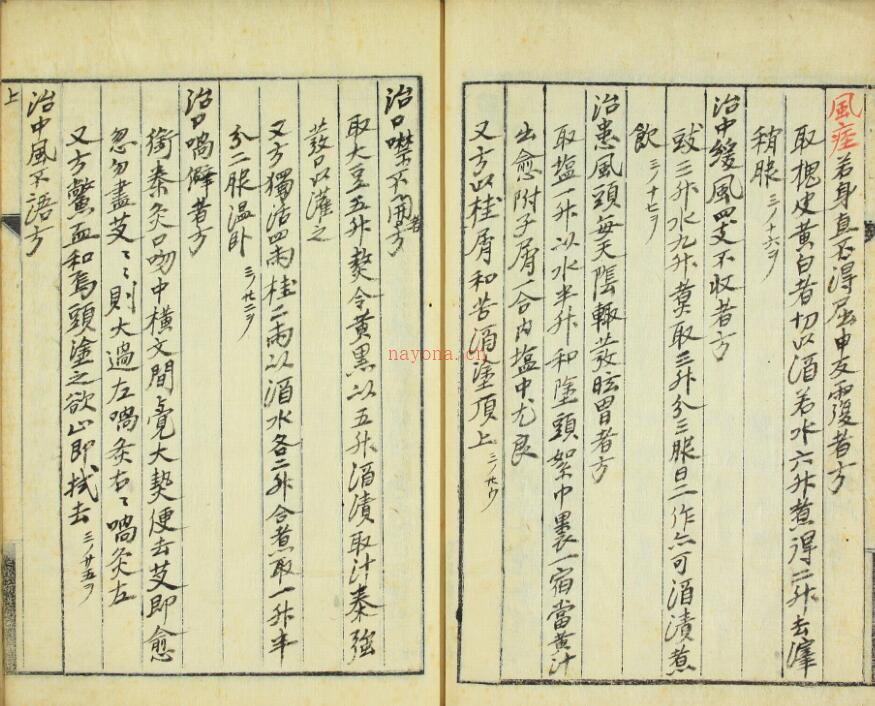 風痙若身直不得屈申反覆者方
取槐皮黄白者切以酒若水六升煮得二升去滓
稍服 三ノ十六ヲ
治中緩風四支不收者方
豉三升水九升煮取三升分三服日二作亦可酒漬煮
飲 三ノ十七ヲ
治患風頭每天陰輙発眩冒者方
取塩一升以水半升和塗頭絮巾裹一宿當黄汁
出愈附子屑一合内塩中尤良
又方以桂屑和苦酒塗頂上 三ノ廿ウ
治口噤不開者方
取大豆五升熬令黄黒以五升酒漬取汁 強
発口以灌之
又方獨活四両桂二両以酒水各二升合煮取一升半
分二服温卧 三ノ廿二ヲ
治口喎僻者方
銜奏灸口吻中横文間覺大熱便去艾即愈
忽勿盡艾〻則大過左喎灸右〻喎灸左
又方鱉血和烏頭塗之欲止即拭去 三ノ廿五ヲ
治中風不語方
上
nayona.cn